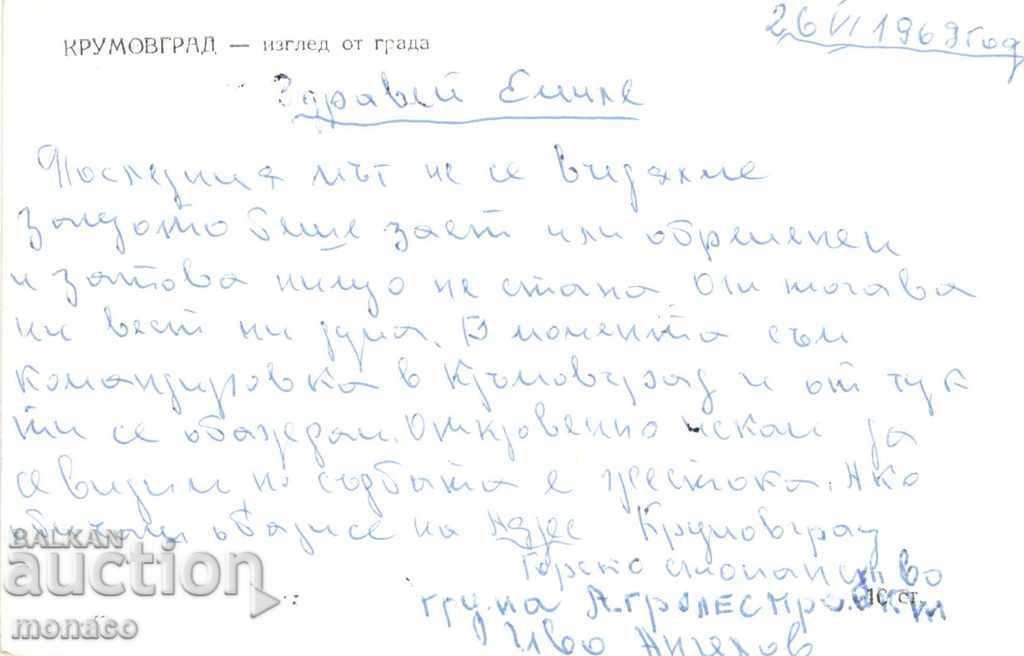 26 VI 1969 год
КРУМОВГРАД — изглед от града
Здравей Емиле
Последния път не се видяхме
Защото беше зает или обременен
и затова нищо не стана. От тогава
ни вест ни дума. В момента съм
командировка в Кръмовград и от тук
ти се обаждам. Откровенно искам да
се видим но съдбата е жестока. Ако
обичаш обади се на Адрес Крумовград
Горско стопанство
група Агролеспроект
10 ст.
Иво Ангелов
BALKAN
auction
monaco